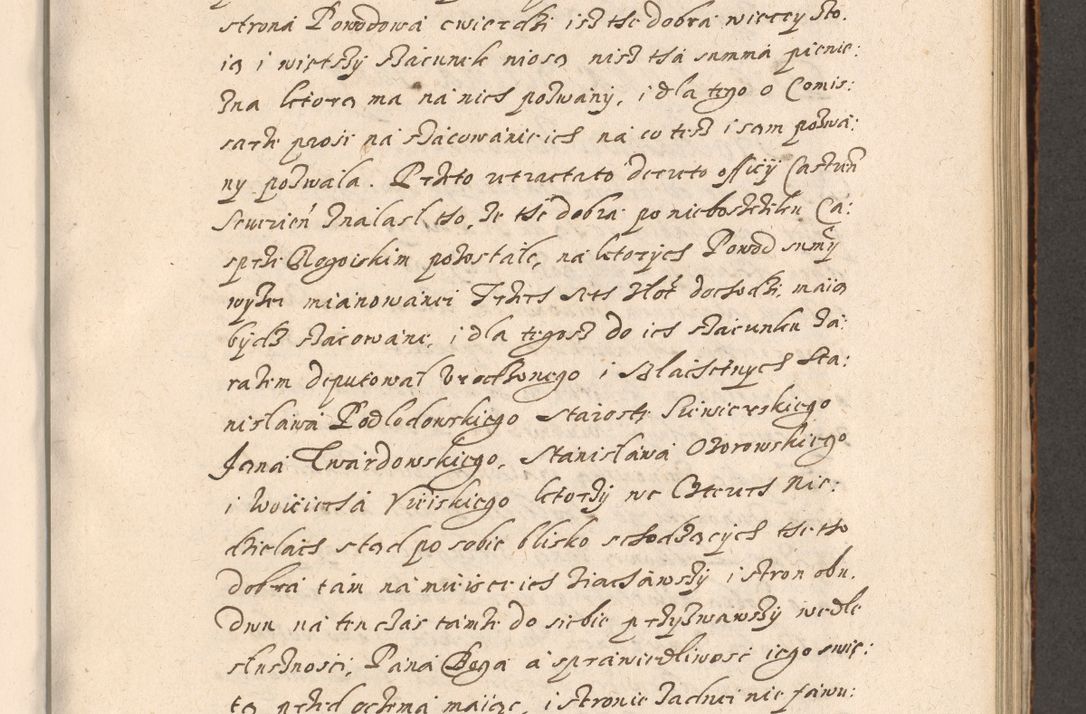 strona Powodowa cwierdzi isz the dobra wieczey sto:
ią i wietszy szacunek niosą nisz tha summa pienie:
zna ktorą ma na nich pozwany, i dla tego o Comis:
sarze prosi na szacowanie ich na co tesz i sam pozwa:
ny pozwala. Przeto retractato decreto officij Castren
Severien znalasl tho, ze the dobra po nieboszcziku Ca:
sprze Rogoiskim pozostałe, na ktorych Powod summy
wyzei mianowanei Trzech set złot dochodzi, maią
bydz szacowane, i dla tegosz do ich szacunku za:
razem deputował Urodzonego i Slachetnych Sta:
nisława Podlodowskiego Starostę Siewierskiego
Jana Twardowskiego, Stanisława Ozorowskiego
i Woiciecha ktorzy we Czterech Nie:
dzielach stąd po sobie blisko schodzących the tho
dobra tam na mieisce ich ziachawszy i stron obu.
dwu na ten czas tamże do siebie przyzwawszy wedle
słusznosci, Pana Boga a sprawiedliwosć iego swię:
tą przed oczema maiąc, i stronie zadnei nie fawu: